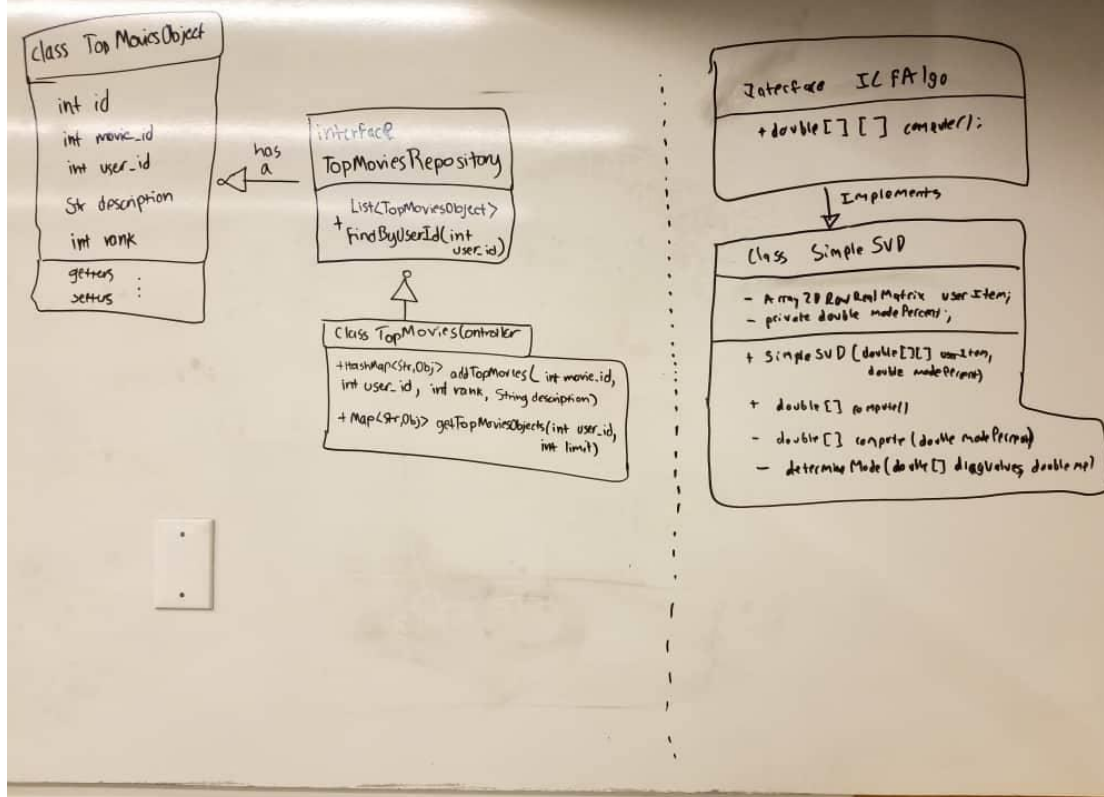 class Top Movies Object
int id
int movie_id
int user_id
Str description
int rank
getters
setters :
has
a
interface
TopMoviesRepository
List<TopMoviesObject>
+ findByUserId(int
user_id)
Class TopMoviesController
+HashMap<Str,Obj> addTopMovies( int movie_id,
int user_id, int rank, String description)
+ Map<Str,Obj> getTopMoviesObjects(int user_id,
int limit)
Interface
+ double[][]
Implements
Class Simple SVD
- Array2DRowRealMatrix userItem;
- private double modePercent;
+ SimpleSVD (double[][] userItem,
double modePercent)
+ double[] compute()
- double[] compute (double modePercent)
- determineMode(double[] diagValues, double mp)